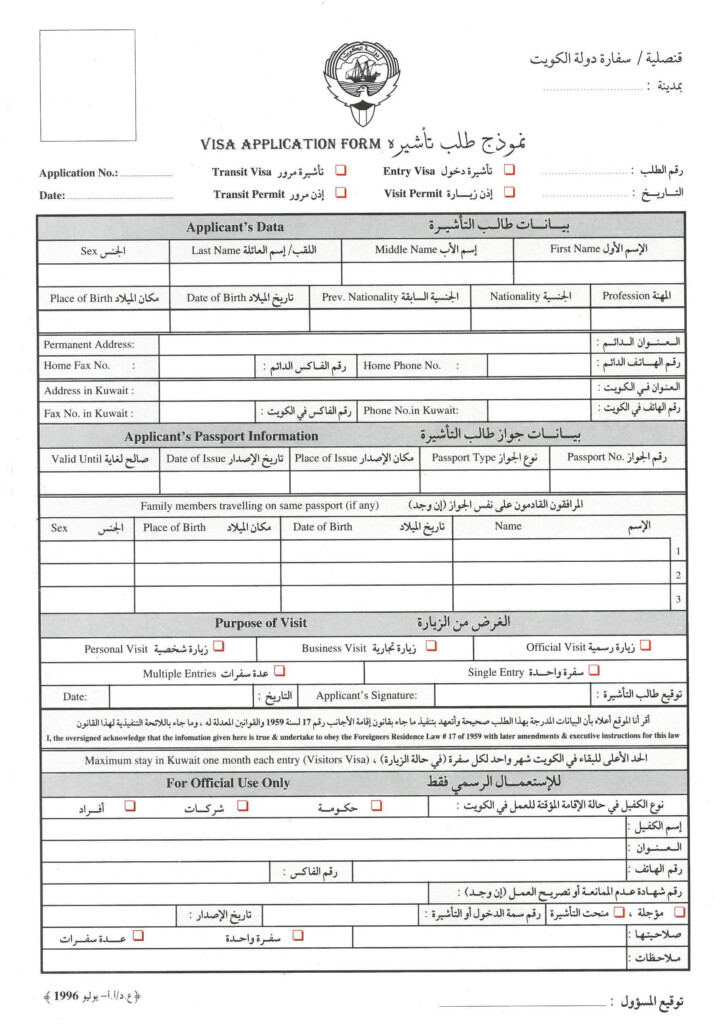 قنصلية / سفارة دولة الكويت
بمدينة :
دولة الكويت
VISA APPLICATION FORM نموذج طلب تأشيرة
Application No.: Transit Visa تأشيرة مرور Entry Visa تأشيرة دخول رقم الطلب :
Date: Transit Permit إذن مرور Visit Permit إذن زيارة التاريخ :
Applicant's Data بيانات طالب التأشيرة
Sex الجنس Last Name اللقب/ إسم العائلة Middle Name إسم الأب First Name الإسم الأول
Place of Birth مكان الميلاد Date of Birth تاريخ الميلاد Prev. Nationality الجنسية السابقة Nationality الجنسية Profession المهنة
Permanent Address: العنوان الدائم :
Home Fax No. : رقم الفاكس الدائم : Home Phone No. : رقم الهاتف الدائم :
Address in Kuwait : العنوان في الكويت :
Fax No. in Kuwait : رقم الفاكس في الكويت : Phone No.in Kuwait: رقم الهاتف في الكويت :
Applicant's Passport Information بيانات جواز طالب التأشيرة
Valid Until صالح لغاية Date of Issue تاريخ الإصدار Place of Issue مكان الإصدار Passport Type نوع الجواز Passport No. رقم الجواز
Family members travelling on same passport (if any) المرافقون القادمون على نفس الجواز (إن وجد)
Sex الجنس Place of Birth مكان الميلاد Date of Birth تاريخ الميلاد Name الإسم
1
2
3
Purpose of Visit الغرض من الزيارة
Personal Visit زيارة شخصية Business Visit زيارة تجارية Official Visit زيارة رسمية
Multiple Entries عدة سفرات Single Entry سفرة واحدة
Date: التاريخ : Applicant's Signature: توقيع طالب التأشيرة :
أقر أنا الموقع أعلاه بأن البيانات المدرجة بهذا الطلب صحيحة وأتعهد بتنفيذ ما جاء بقانون إقامة الأجانب رقم 17 لسنة 1959 والقوانين المعدلة له ، وما جاء باللائحة التنفيذية لهذا القانون
I, the oversigned acknowledge that the infomation given here is true & undertake to obey the Foreigners Residence Law # 17 of 1959 with later amendments & executive instructions for this law
Maximum stay in Kuwait one month each entry (Visitors Visa) ، الحد الأعلى للبقاء في الكويت شهر واحد لكل سفرة (في حالة الزيارة)
For Official Use Only للإستعمال الرسمي فقط
نوع الكفيل في حالة الإقامة المؤقتة للعمل في الكويت : حكومة شركات أفراد
إسم الكفيل :
العنوان :
رقم الهاتف : رقم الفاكس :
رقم شهادة عدم الممانعة أو تصريح العمل (إن وجد) :
مؤجلة ، منحت التأشيرة رقم سمة الدخول أو التأشيرة : تاريخ الإصدار :
صلاحيتها : سفرة واحدة عدة سفرات
ملاحظات :
﴿ع.د/أ.أ– يوليو 1996﴾
توقيع المسؤول :